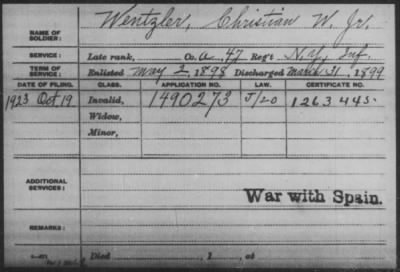 NAME OF SOLDIER: Wentzler, Christian W. Jr.
SERVICE: Late rank, Co. A. 47 Reg't N.Y. Inf.
TERM OF SERVICE: Enlisted May 2, 1898 Discharged March 31, 1899
DATE OF FILING. CLASS. APPLICATION NO. LAW. CERTIFICATE NO.
1923 Oct. 19 Invalid, 1490273 J/20 1263445.
Widow,
Minor,
ADDITIONAL SERVICES:
War with Spain.
REMARKS:
Died , 1 , at